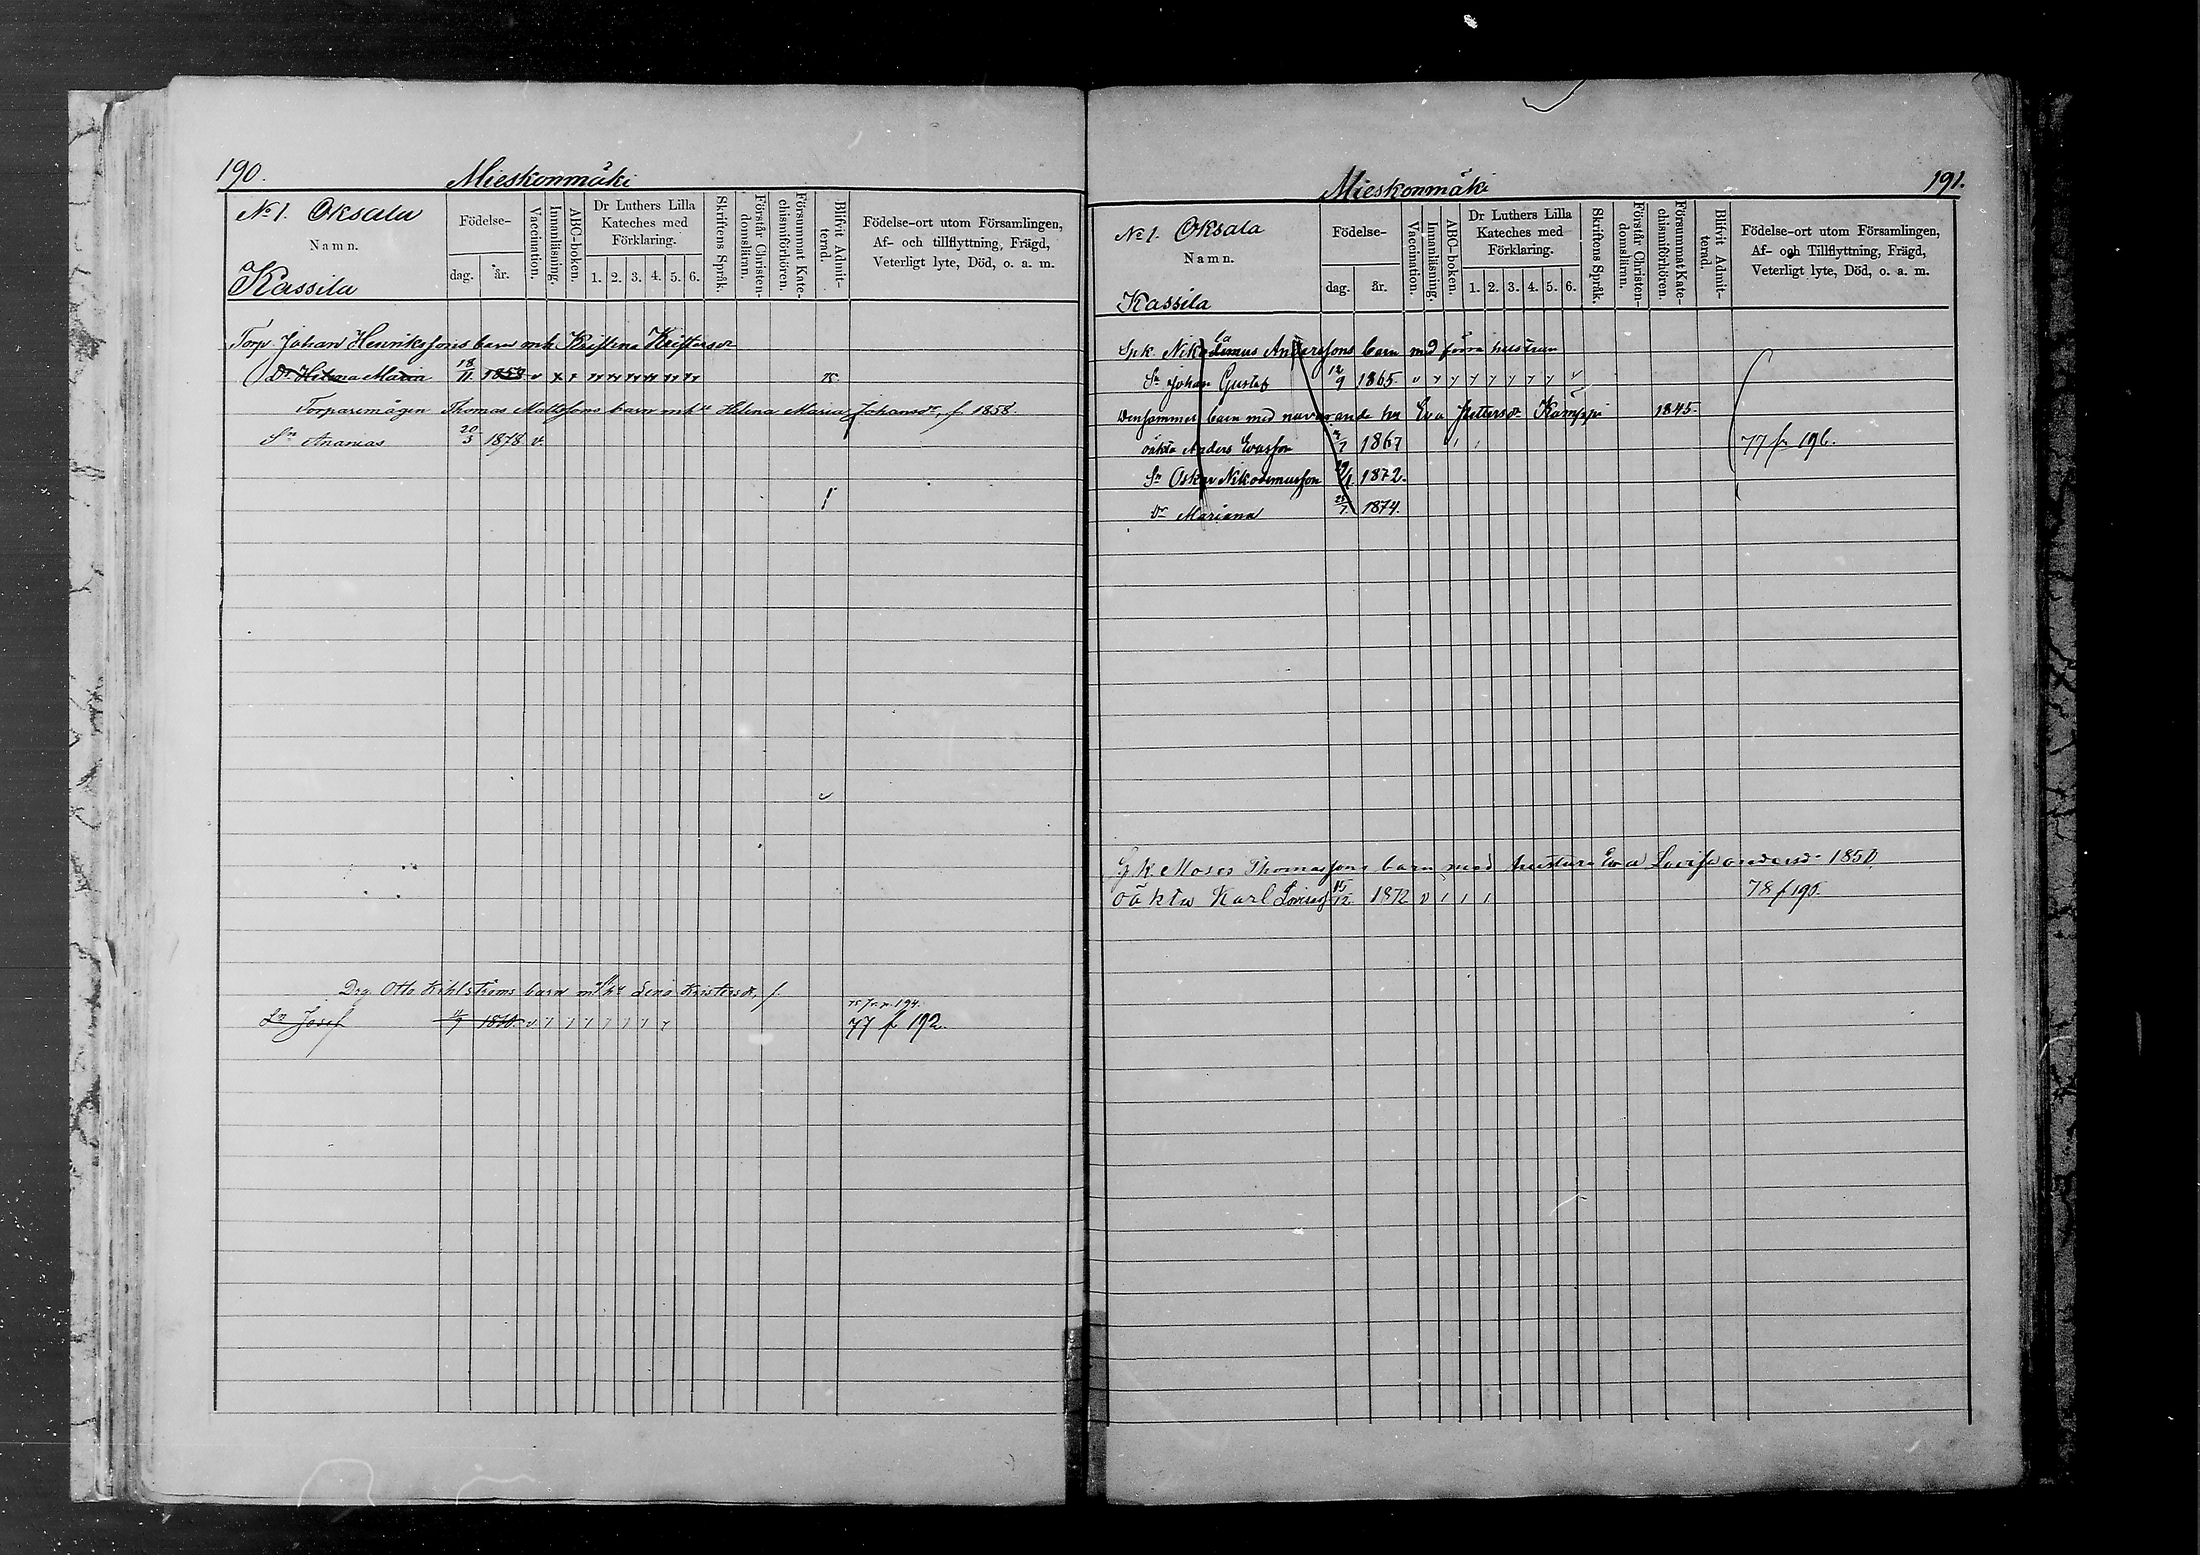 190.
Mieskonmäki
No 1. Oksala
Namn.
Kassila
Födelse-
dag. år.
Vaccination.
Innanläsning.
ABC-boken.
Dr Luthers Lilla
Kateches med
Förklaring.
1. 2. 3. 4. 5. 6.
Skriftens Språk.
Förstår Christen-
domsläran.
Försummat Kate-
chismiförhören.
Blifvit Admit-
terad.
Födelse-ort utom Församlingen,
Af- och tillflyttning, Frägd,
Veterligt lyte, Död, o. a. m.
Torp. Johan Henrikssons barn m h Kristina Kristersdr
Dr Helena Maria 18/11 1858
Torparemågen Thomas Mattssons barn m h Helena Maria Johansdr, f. 1858.
Sn Ananias 20/3 1878 v.
Drg. Otto Kihlströms barn m h Lena Kristersdr, f.
Sn Josef 1870. 77 f 192.
191.
Mieskonmäki
No 1. Oksala
Namn.
Kassila
Födelse-
dag. år.
Vaccination.
Innanläsning.
ABC-boken.
Dr Luthers Lilla
Kateches med
Förklaring.
1. 2. 3. 4. 5. 6.
Skriftens Språk.
Förstår Christen-
domsläran.
Försummat Kate-
chismiförhören.
Blifvit Admit-
terad.
Födelse-ort utom Församlingen,
Af- och Tillflyttning, Frägd,
Veterligt lyte, Död, o. a. m.
Spk. Nikodemus Anderssons barn med förra hustrun
Sn Johan Gustaf 12/9 1865.
Densammes barn med nuvarande hu Eva Pettersdr Kamppi 1845.
oäkta Anders Evasson 1867 77 fr 196.
Sn Oskar Nikodemusson 1872.
Dr Mariana 1874.
Moses Thomassons barn med hustrun Eva Lovisa Andersdr 1850
oäkta Karl Lovisas 15/12 1872 v 78 f 190.